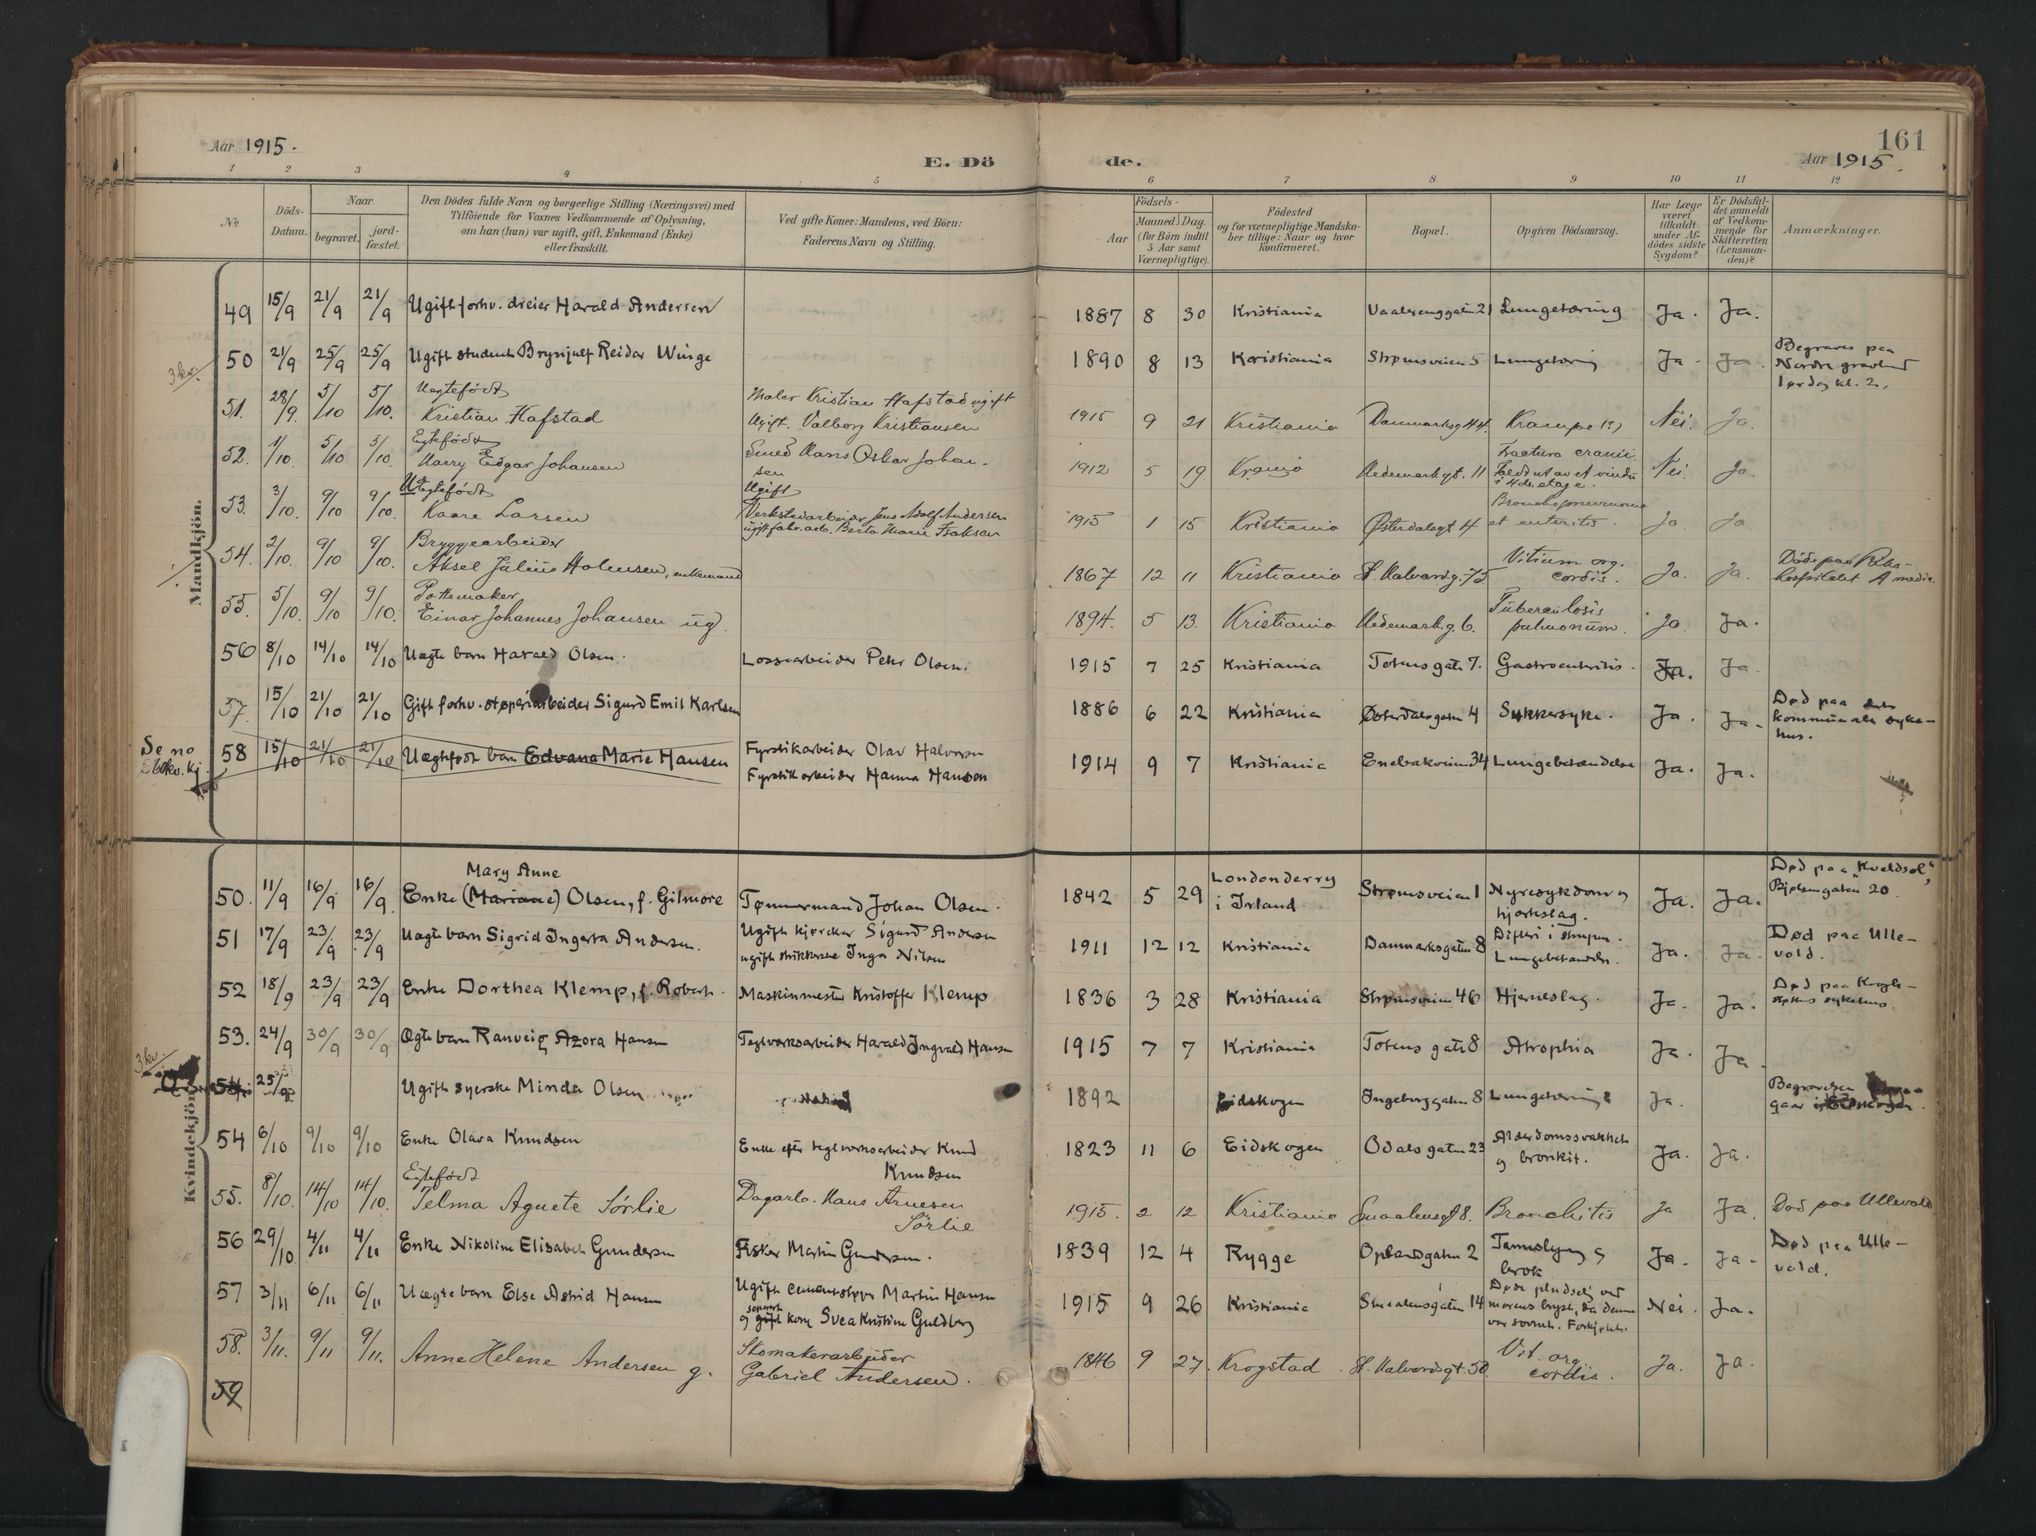 Aar 1915.
E. Dö de.
161
Aar 1915.
1 2 3 4 5 6 7 8 9 10 11 12
No
Döds-Datum.
Naar
begravet.
jord-fæstet.
Den Dödes fulde Navn og borgerlige Stilling (Næringsvei) med
Tilföiende for Voxnes Vedkommende af Oplysning,
om han (hun) var ugift, gift, Enkemand (Enke)
eller fraskilt.
Ved gifte Koner: Mandens, ved Börn:
Faderens Navn og Stilling.
Aar
Födsels-
Maaned. Dag.
(for Börn indtil
5 Aar samt
Værnepligtige).
Födested
og for værnepligtige Mandska-
ber tillige: Naar og hvor
konfirmeret.
Bopæl.
Opgiven Dödsaarsag.
Har Læge
været
tilkaldt
under Af-
dödes sidste
Sygdom?
Er Dödsfal-
det anmeldt
af Vedkom-
mende for
Skifteretten
(Lensman-
den)?
Anmærkninger.
Mandkjön.
49 15/9 21/9 21/9 Ugift forhv. dreier Harald Andersen 1887 8 30 Kristiania Vaalerenggaten 21 Lungetæring Ja. Ja.
3 kv.
50 21/9 25/9 25/9 Ugift student Brynjulf Reidar Winge 1890 8 13 Kristiania Strømsveien 5 Lungetæring Ja. Ja. Begraves paa
Nordre gravlund
lørdag kl. 2.
51. 28/9 5/10 5/10. Uegtefødt
Kristian Hafstad Maler Kristian Hafstad ugift
Ugift. Valborg Kristiansen 1915 9 21 Kristiania Danmarksg 44. Krampe (?) Nei. Ja.
52. 1/10. 5/10 5/10. Egtefødt
Harry Edgar Johansen Smed Hans Oskar Johan-
sen 1912 5 19 Kr.ania Hedemarksgt. 11 Fractura cranii.
Faldt ut av et vindu
i 4de etage. Nei. Ja
53. 3/10. 9/10 9/10. Uegtefødt
Kaare Larsen Ugift
Verkstedarbeider Jens Adolf Andersen
ugift fabr. arb. Berta Marie Isaksen 1915 1 15 Kristiania Østerdalsgt 4 Bronchopneumonie
et enteritis. Ja Ja
54. 2/10. 9/10 9/10. Bryggearbeider
Aksel Julius Holmsen, enkemand 1867 12 11 Kristiania St. Halvardsg. 75 Vitium org.
cordis. Ja. Ja. Døde paa Riks-
hospitalet A medic.
55. 5/10. 9/10 9/10. Pottemaker
Einar Johannes Johansen ug. 1894. 5 13. Kristiania Hedemarksg. 6. Tuberculosis
pulmonum. Ja. Ja.
56 8/10 14/10 14/10 Uægte barn Harald Olsen. Lossearbeider Petr Olsen. 1915 7 25 Kristiania Totens gate 7. Gastroenteritis. Ja. Ja.
57. 15/10 21/10 21/10 Gift forhv. støperiarbeider Sigurd Emil Karlsen 1886 6 22 Kristiania Østerdalsgaten 4 Sukkersyke. Ja. Ja. Død paa det
kommunale syke-
hus.
Se no
kv. kj.
58 15/10 21/10 21/10 Uægtefødt barn Edvana Marie Hansen Fyrstikarbeider Olav Halvorsen
Fyrstikarbeider Hanna Hansen 1914 9 7 Kristiania Enebakveien 34 Lungebetændelse Ja. Ja.
Kvindekjön.
50. 11/9 16/9 16/9. Mary Anne
Enke (Mariane) Olsen, f. Gilmore Tømmermand Johan Olsen. 1842 5 29 Londonderry
i Irland Strømsveien 1 Nyresykdom og
hjerteslag. Ja. Ja. Død paa "Kveldsol",
20.
51 17/9 23/9 23/9 Uægte barn Sigrid Ingerta Andersen. Ugift kjørekar Sigurd Andersen
ugift Inga Nilsen 1911 12 12 Kristiania Danmarksgaten 8 Difteri i strupen.
Lungebetændelse. Ja. Ja. Død paa Ulle-
vold.
52 18/9 23/9 23/9 Enke Dorthea Klemp, f. Robert. Maskinmester Kristoffer Klemp 1836 3 28 Kristiania Strømsveien 46 Hjerneslag. Ja. Ja. Død paa Krogh-
støtten sykehus.
53. 24/9 30/9 30/9 Ægte barn Ranveig Azora Hansen Teglverksarbeider Harald Ingvald Hansen 1915 7 7 Kristiania Totens gate 8 Atrophia Ja. Ja.
3 kv.
54 25/9 Ugift syerske Minda Olsen 1892 Eidskogen Ingeborggaten 8 Lungetæring Ja. Begravelsen
gaar i Eidskogen.
54 6/10 9/10 9/10 Enke Olava Knudsen Enke efter teglverksarbeider Knud
Knudsen 1823 11 6 Eidskogen Odalsgaten 23 Alderdomssvakhet
og bronkit. Ja. Ja.
55. 8/10. 14/10 14/10. Egtefødt
Telma Agnete Sørlie Dagarb. Hans Arnesen
Sørlie 1915. 2 12 Kristiania Smaalensgt 8. Bronchitis Ja Ja. Død paa Ullevold
56 29/10 4/11 4/11 Enke Nikoline Elisabeth Gundersen Fisker Martin Gundersen. 1839 12 4 Rygge Oplandsgaten 2 Tarmslyng og
brok Ja. Ja. Død paa Ulle-
vold.
57 3/11 6/11 6/11 Uægte barn Else Astrid Hansen Ugift cementstøper Martin Hansen
og separert gift kone Svea Kristine Guldberg 1915 9 26 Kristiania Smaalensgaten 14 Døde pludselig ved
morens bryst, da denne
var sovnet. Nei. Ja.
58. 3/11. 9/11 9/11. Anne Helene Andersen g. Skomakerarbeider
Gabriel Andersen. 1846 9 27. Krogstad St. Halvardsgt. 50 Vit. org.
cordis. Ja. Ja.
59